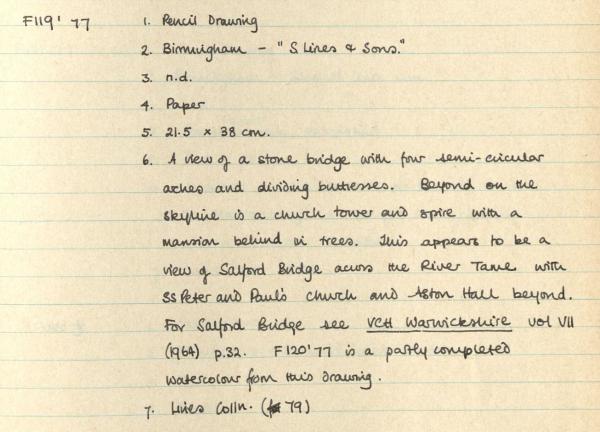 F119' 77 1. Pencil Drawing
2. Birmingham - "S. Lines & Sons."
3. n.d.
4. Paper
5. 21.5 x 38 cm.
6. A view of a stone bridge with four semi-circular
arches and dividing buttresses. Beyond on the
skyline is a church tower and spire with a
mansion behind in trees. This appears to be a
view of Salford Bridge across the River Tame with
SS Peter and Paul's church and Aston Hall beyond.
For Salford Bridge see VCH Warwickshire vol VII
(1964) p.32. F120'77 is a partly completed
watercolour from this drawing.
7. Lines Colln. (79)